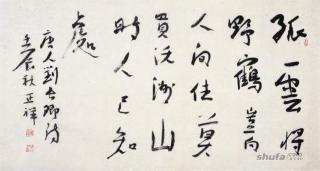 孤雲將
野鶴豈向
人间住莫
買沃洲山
時人已知
處
唐人劉長卿詩
壬辰秋亚祥